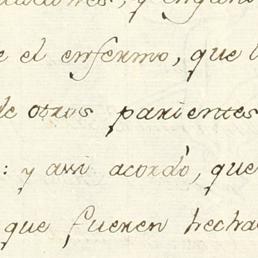 e el enfermo, que l
de otros parientes
: y assi acordò, que
que fueren hecha